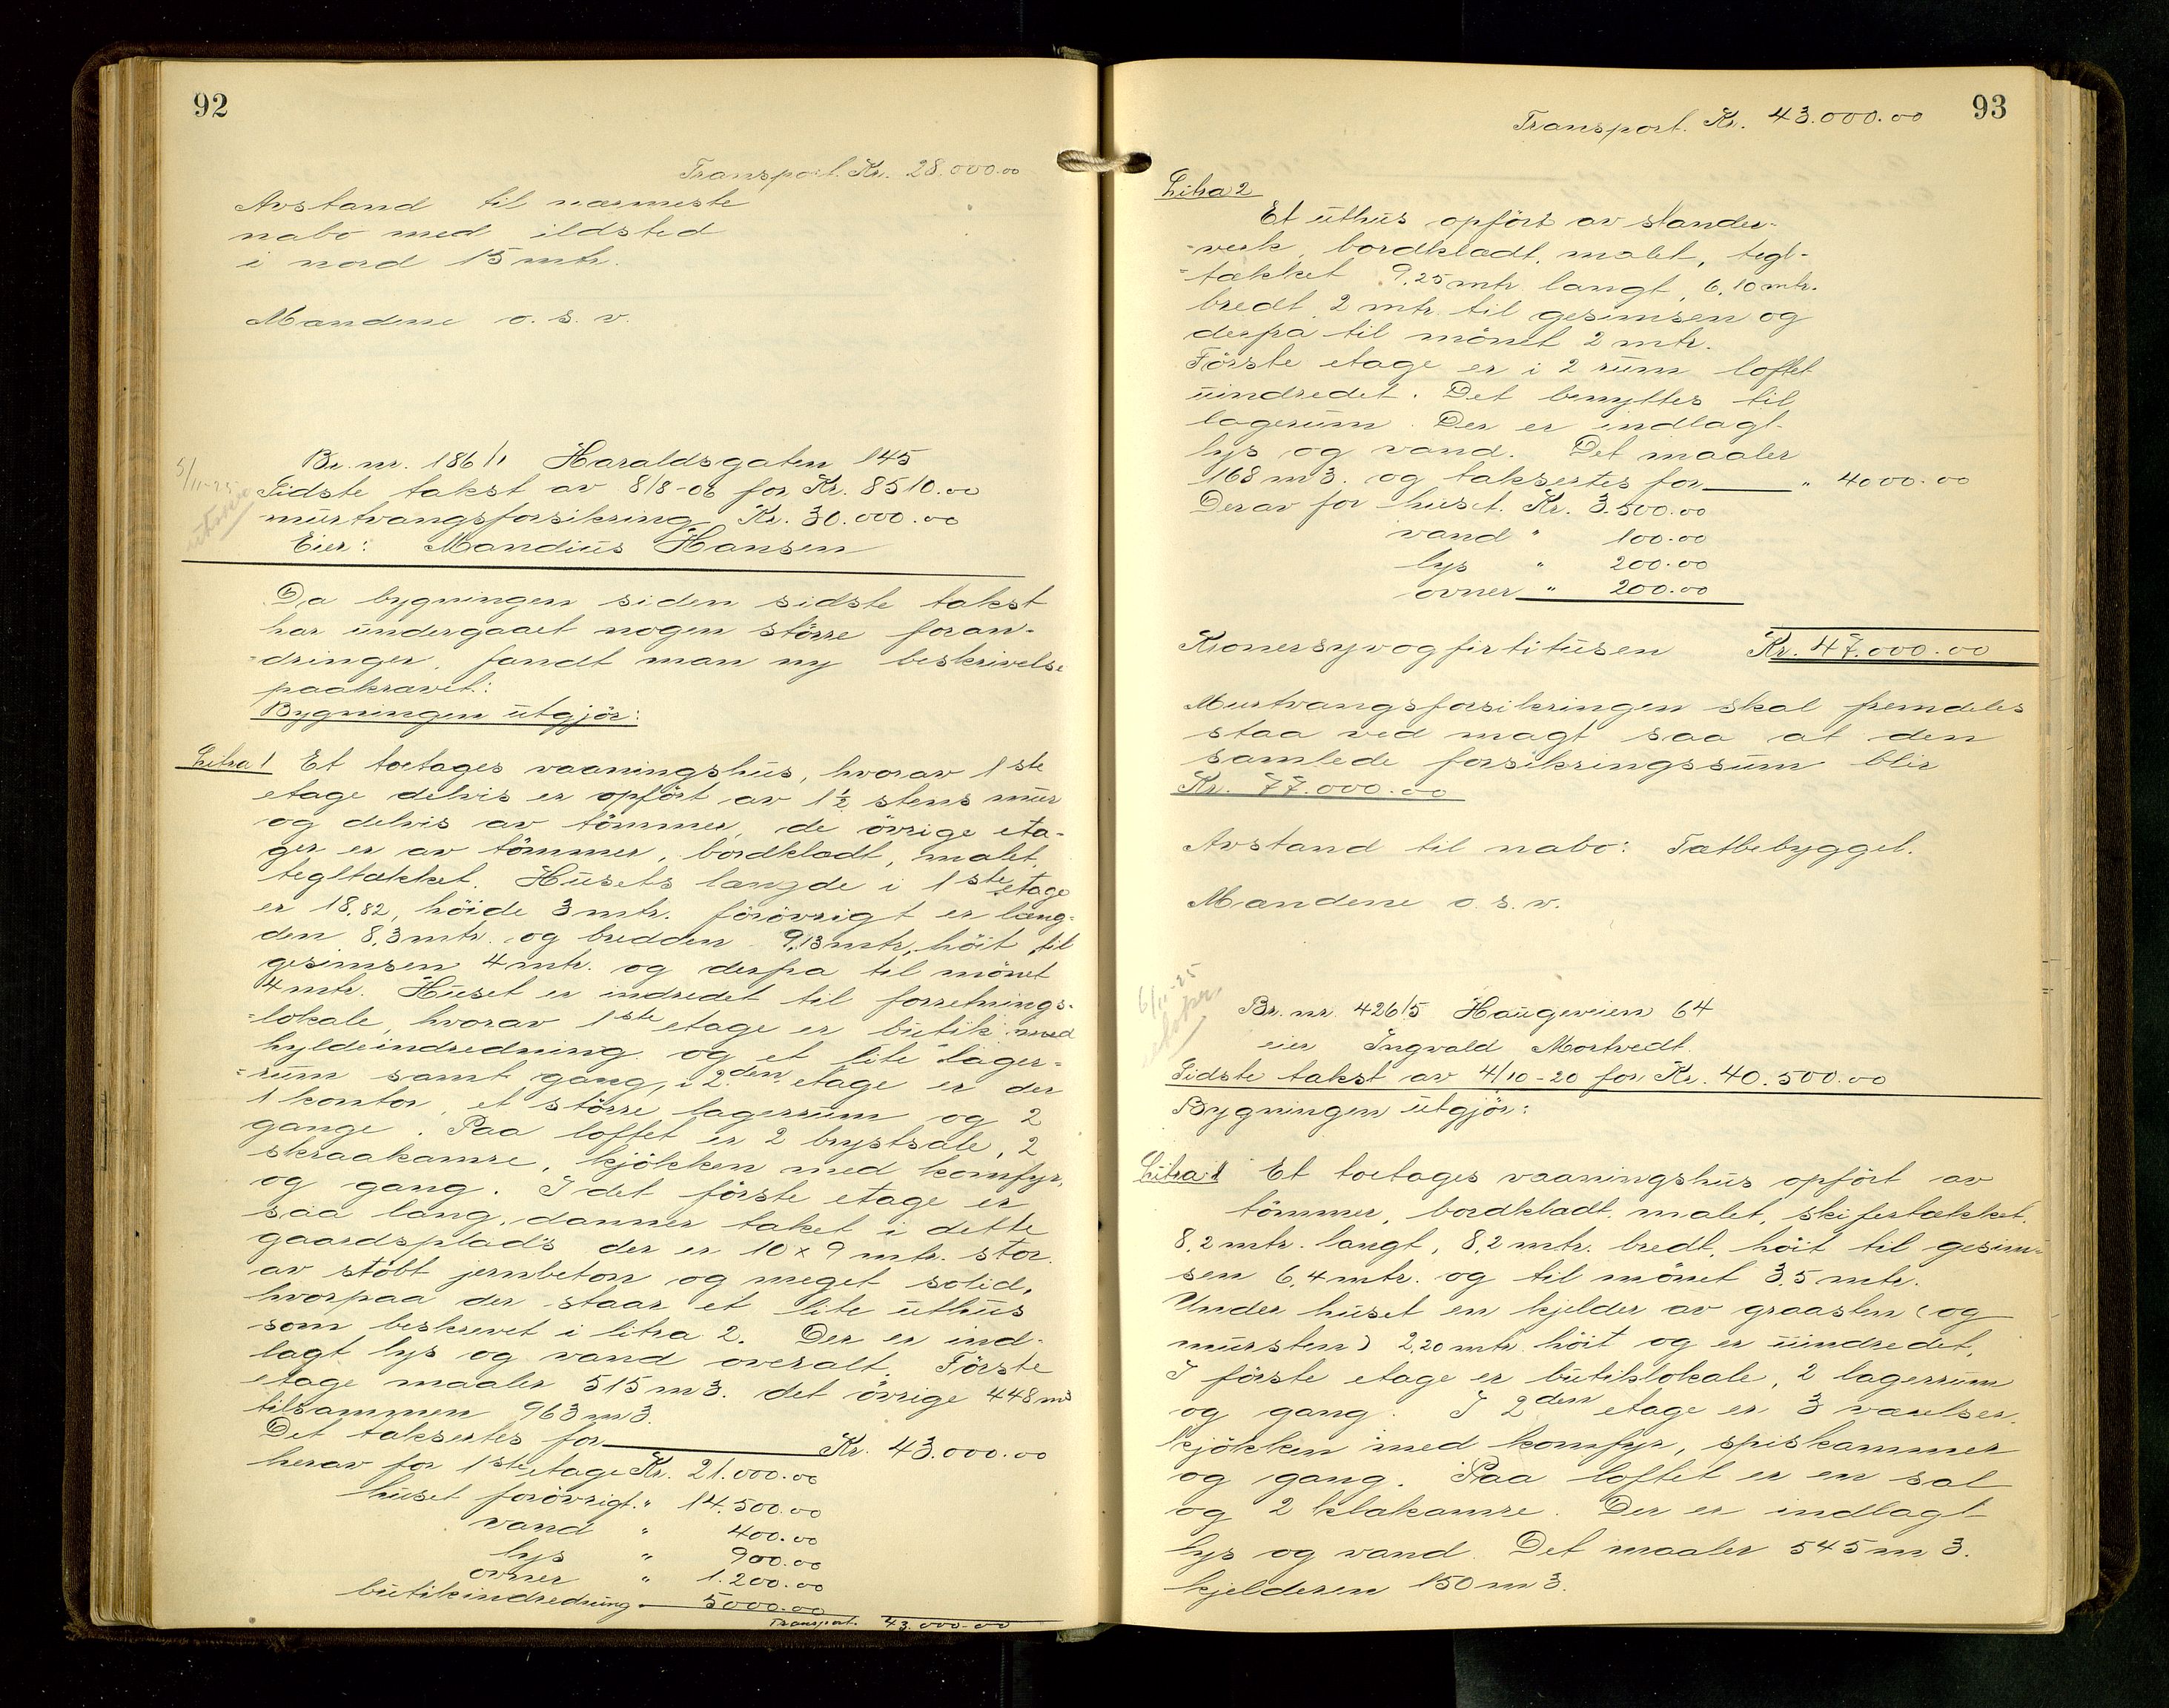 92
Transport. Kr. 28.000.00
Avstand til nærmeste
nabo med ildsted
i nord 15 mtr.
Mandene o. s. v.
5/11-25
Br. nr. 186/1 Haraldsgaten 145
Sidste takst av 8/8-06 for Kr. 8510.00
murtvangsforsikring Kr. 30.000.00
Eier: Mandius Hansen
Da bygningen siden sidste takst
har undergaaet nogen större foran-
=dringer, fandt man ny beskrivelse
paakrævet:
Bygningen utgjör:
Litra 1 Et toetages vaaningshus, hvorav 1ste
etage delvis er opfört av 1½ stens mur
og delvis av tömmer, de övrige eta-
ger er av tömmer, bordklædt, malet,
tegltækket. Husets længde i 1ste etage
er 18.82, höide 3 mtr. forövrigt er læng-
den 8,3 mtr. og bredden 9,13 mtr, höit til
gesimsen 4 mtr. og derfra til mönet
4 mtr. Huset er indredet til forretnings-
=lokale, hvorav 1ste etage er butik med
hyldeindredning og et lite lager-
=rum samt gang, i 2den etage er der
1 kontor, et större lagerrum og 2
gange. Paa loftet er 2 brystsale, 2
skraakamre, kjökken med komfyr,
og gang. I det förste etage er
saa lang, danner taket i dette
gaardsplads der er 10 x 9 mtr. stor
av stöbt jernbeton og meget solid,
hvorpaa der staar et lite uthus
som beskrevet i litra 2. Der er ind-
lagt lys og vand overalt. Förste
etage maaler 515 m3. det övrige 448 m3
tilsammen 963 m3.
Det taksertes for Kr. 43.000.00
herav for 1ste etage Kr. 21.000.00
huset forövrigt. " 14.500.00
vand " 400.00
lys " 900.00
ovner " 1.200.00
butikindredning 5000.00
Transport. 43.000.00
93
Transport. Kr. 43.000.00
Litra 2
Et uthus opfört av stander-
=verk, bordklædt, malet, tegl-
=tækket 9,25 mtr langt, 6,10 mtr.
bredt, 2 mtr. til gesimsen og
derfra til mönet 2 mtr.
Förste etage er i 2 rum loftet
uindredet. Det benyttes til
lagerum. Der er indlagt
lys og vand. Det maaler
168 m3. og taksertes for " 4000.00
Derav for huset. Kr. 3.500.00
vand " 100.00
lys " 200.00
ovner " 200.00
Kronersyvogfirtitusen Kr. 47.000.00
Murtvangsforsikringen skal fremdeles
staa ved magt saa at den
samlede forsikringssum blir
Kr. 77.000.00
Avstand til nabo: Tætbebygget.
Mandene o. s. v.
6/11-25
Br. nr. 426/5 Haugeveien 64
eier Ingvald Mortvedt.
Sidste takst av 4/10-20 for Kr. 40.500.00
Bygningen utgjör:
Litra 1 Et toetages vaaningshus opfört av
tömmer, bordklædt, malet, skifertækket.
8,2 mtr. langt, 8,2 mtr. bredt, höit til gesim-
sen 6,4 mtr. og til mönet 3,5 mtr.
Under huset en kjelder av graasten (og
mursten) 2,20 mtr. höit og er uindredet,
I förste etage er butiklokale, 2 lagerrum
og gang. I 2den etage er 3 værelser,
kjökken med komfyr, spiskammer
og gang. Paa loftet er en sal
og 2 klækamre. Der er indlagt
lys og vand. Det maaler 545 m3.
kjelderen 150 m3.